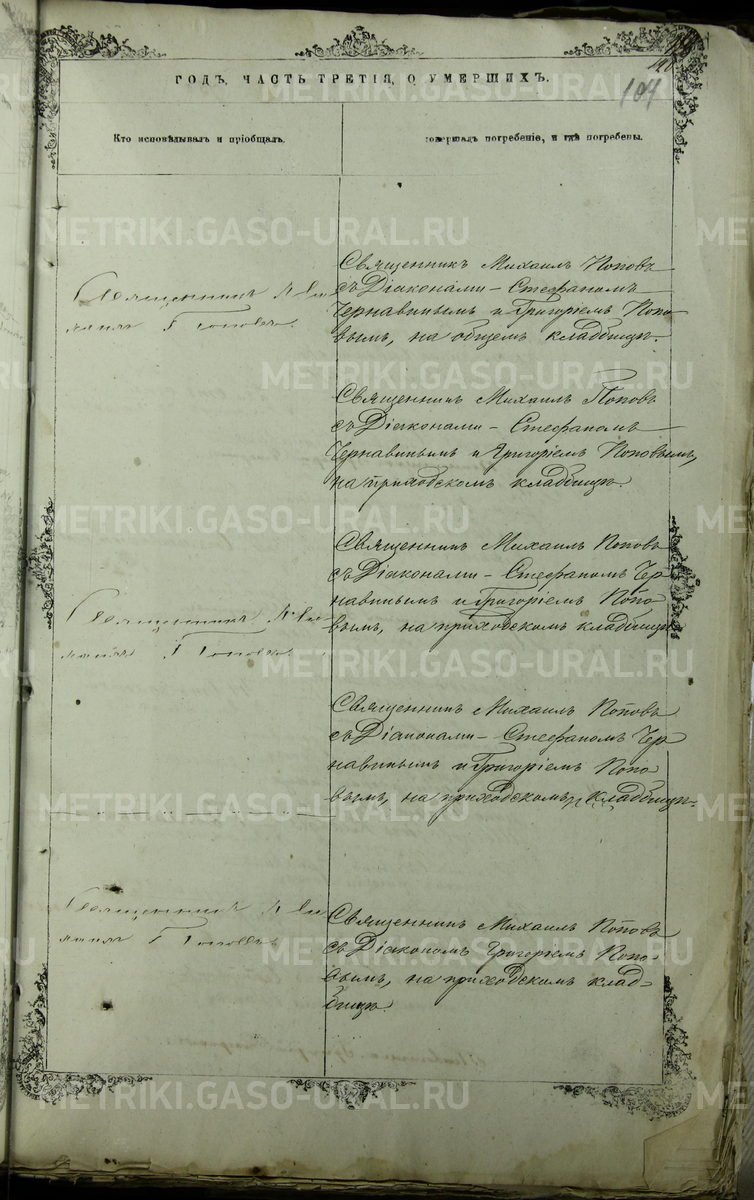 ГОДЪ, ЧАСТЬ ТРЕТІЯ, О УМЕРШИХЪ.
107
Кто исповѣдывалъ и пріобщалъ.
совершалъ погребеніе, и гдѣ погребены.
Священникъ Михаилъ Поповъ
съ Діаконами – Стефаномъ
Чернавинымъ и Григоріемъ Попо
вымъ, на общемъ кладбищѣ.
Священникъ Ми
хаилъ Поповъ.
Священникъ Михаилъ Поповъ
съ Діаконами – Стефаномъ
Чернавинымъ и Григоріемъ Поповымъ,
на приходскомъ кладбищѣ.
Священникъ Михаилъ Поповъ
съ Діаконами – Стефаномъ Чер
навинымъ и Григоріемъ Попо
вымъ, на приходскомъ кладбищѣ.
Священникъ Ми
хаилъ Поповъ.
Священникъ Михаилъ Поповъ
съ Діаконами – Стефаномъ Чер
навинымъ и Григоріемъ Попо
вымъ, на приходскомъ кладбищѣ.
Священникъ Ми
хаилъ Поповъ
Священникъ Михаилъ Поповъ
съ Діакономъ Григоріемъ Попо-
вымъ, на приходскомъ клад-
бищѣ.
METRIKI.GASO-URAL.RU